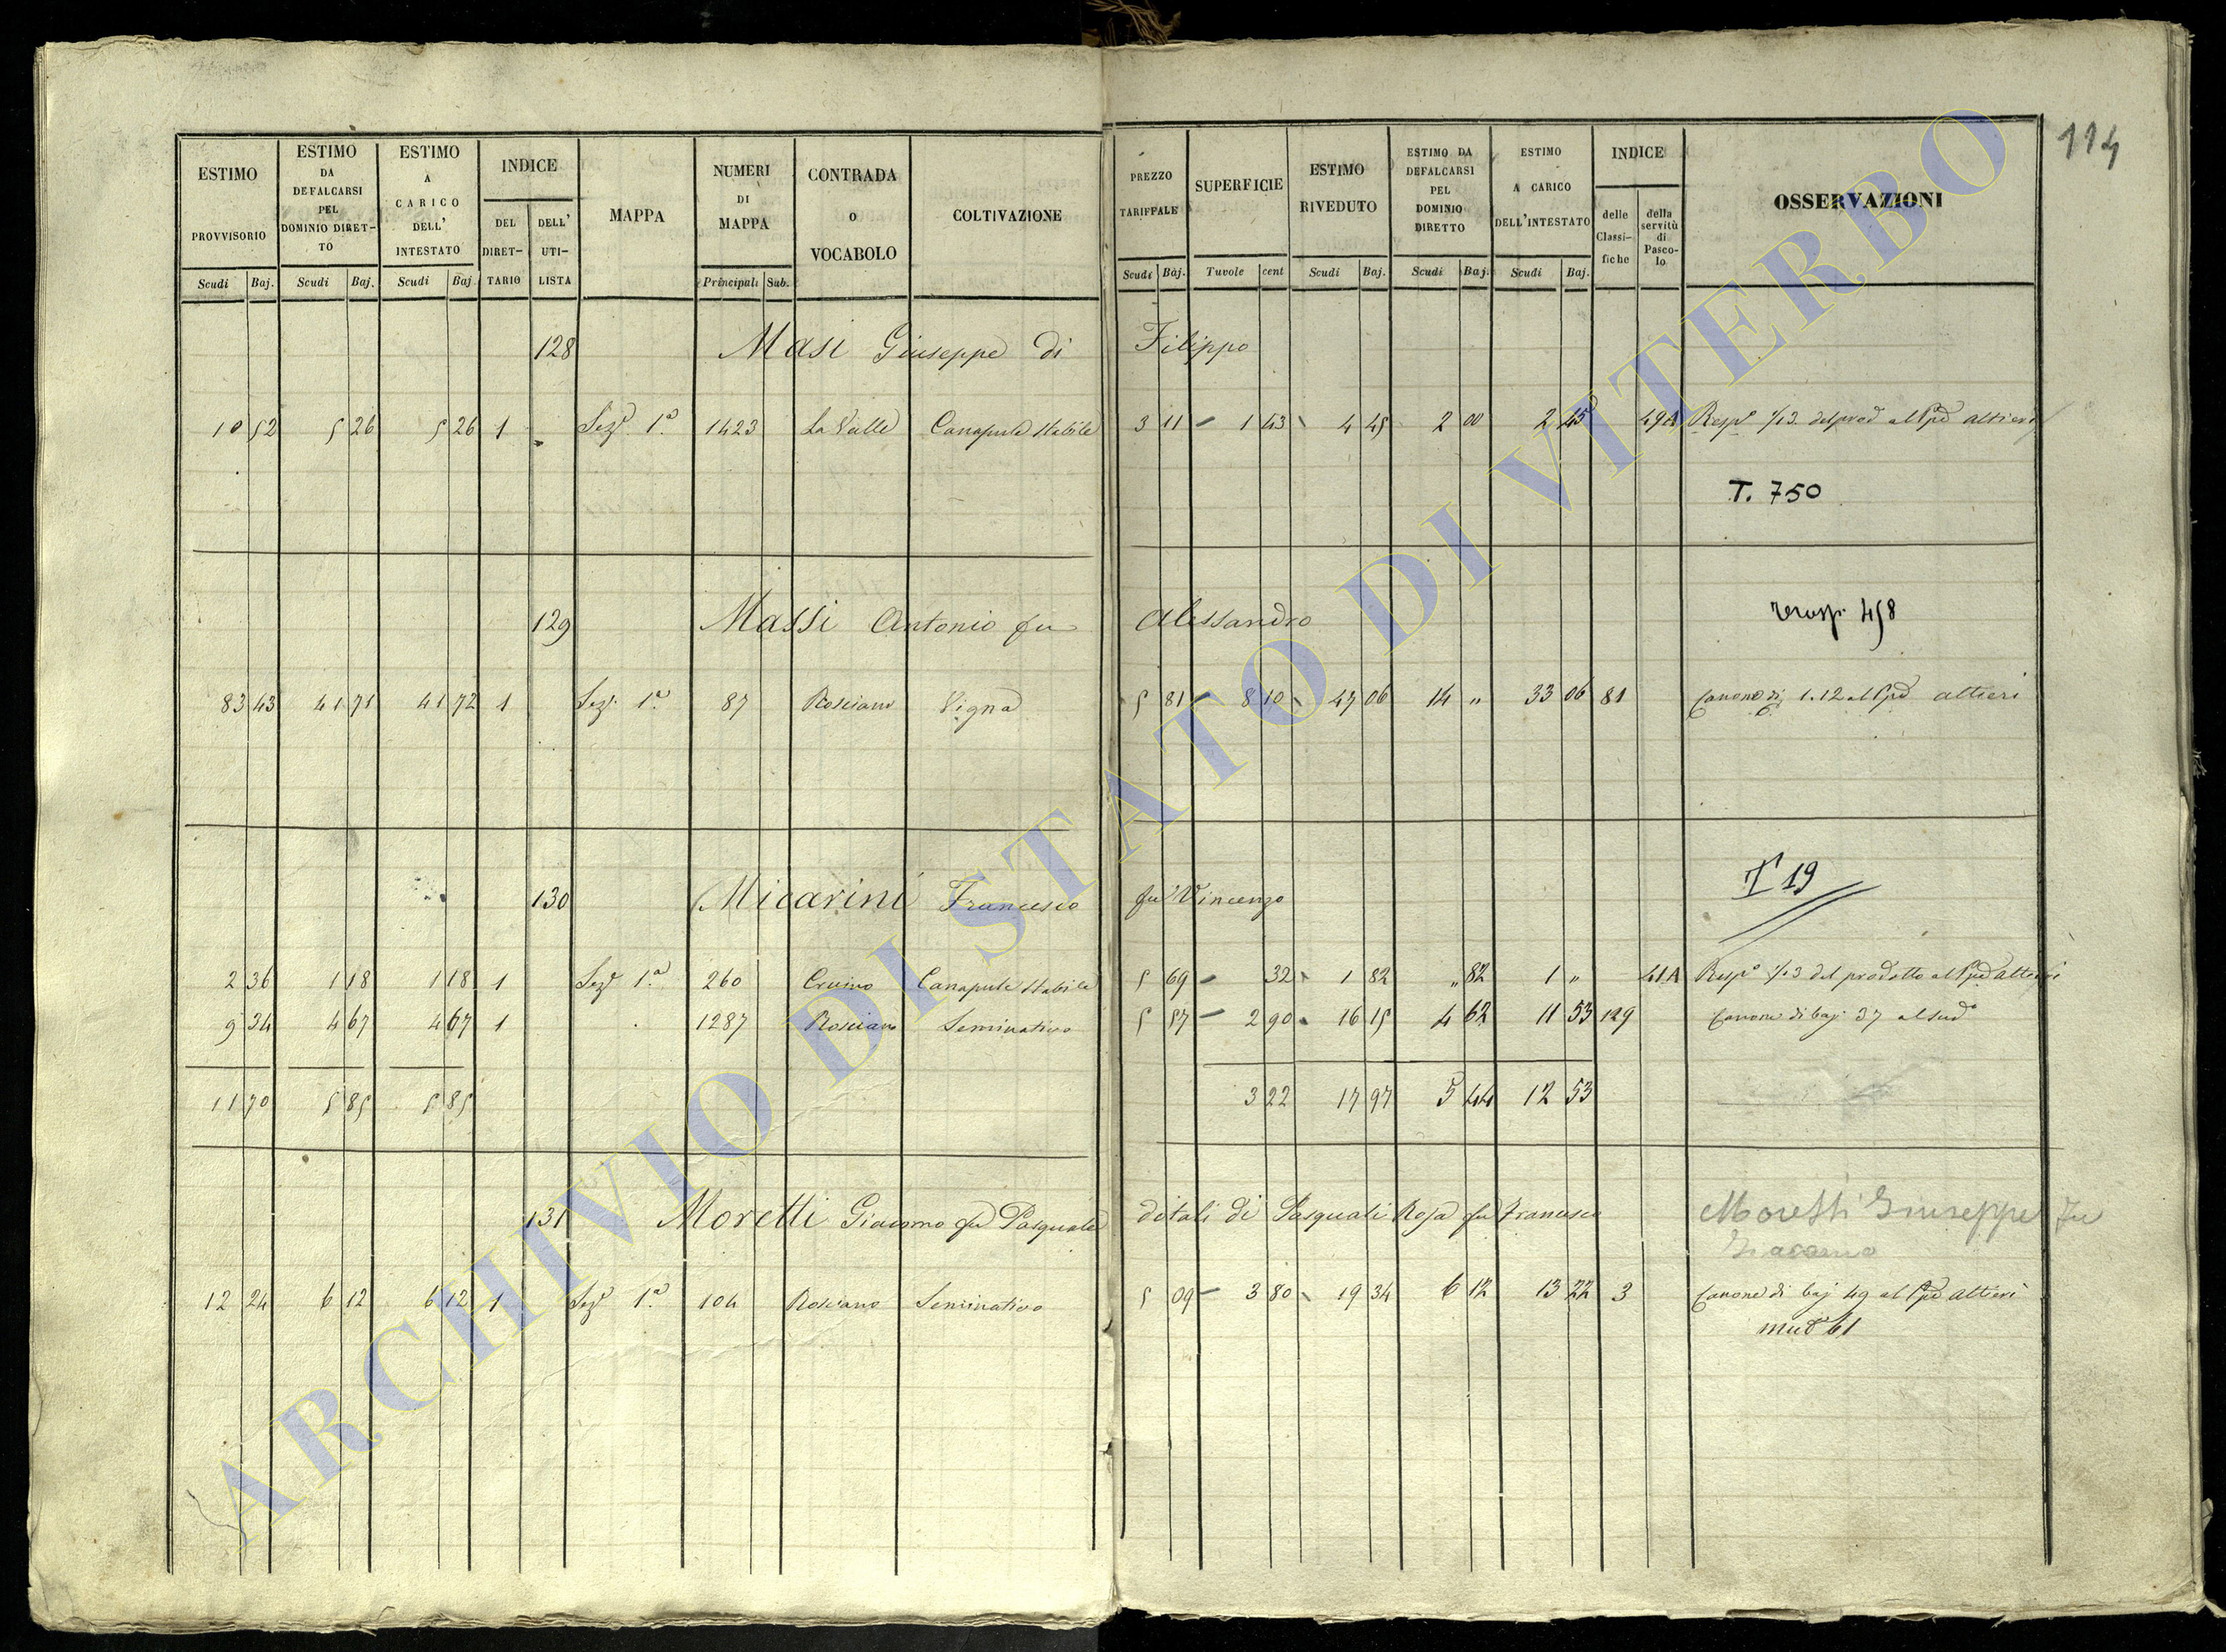 114
ESTIMO PROVVISORIO
ESTIMO DA DEFALCARSI PEL DOMINIO DIRET-TO
ESTIMO A CARICO DELL' INTESTATO
INDICE
DEL DIRET-TARIO
DELL' UTI-LISTA
MAPPA
NUMERI DI MAPPA
CONTRADA O VOCABOLO
COLTIVAZIONE
PREZZO TARIFFALE
SUPERFICIE
ESTIMO RIVEDUTO
ESTIMO DA DEFALCARSI PEL DOMINIO DIRETTO
ESTIMO A CARICO DELL'INTESTATO
INDICE
delle Classi-fiche
della servitù di Pasco-lo
OSSERVAZIONI
Scudi Baj. Scudi Baj. Scudi Baj. Principali Sub. Scudi Baj. Tavole cent Scudi Baj. Scudi Baj. Scudi Baj.
128 Masi Giuseppe di Filippo
10 52 5 26 5 26 1 Sez.e 1.a 1423 La Valle Canapule stabile 3 11 1 43 4 45 2 00 2 45 49A Resp.e 1/13 del prod al Ppe Altieri
T. 750
129 Massi Antonio fu Alessandro
458
83 43 41 71 41 72 1 Sez. 1.a 87 Rosciano Vigna 5 81 8 10 47 06 14 " 33 06 81 Canone di 1.12 al Ppe Altieri
130 Micarini Francesco fu Vincenzo
T 19
2 36 1 18 1 18 1 Sez.e 1.a 260 Canapule stabile 5 69 32 1 82 " 82 1 " 41A Resp.e 1/13 del prodotto al Ppe Altieri
9 34 4 67 4 67 1 1287 Rosciano Seminativo 5 57 2 90 16 15 4 62 11 53 129 Canone di baj. 37 al sud.o
11 70 5 85 5 85 3 22 17 97 5 44 12 53
131 Moretti Giacomo fu Pasquale di Pasquali Rosa fu Francesco
Moretti Giuseppe fu
Giacomo
12 24 6 12 6 12 1 Sez.e 1.a 104 Rosciano Seminativo 5 09 3 80 19 34 6 12 13 22 3 Canone di baj 49 al Ppe Altieri
61
ARCHIVIO DI STATO DI VITERBO